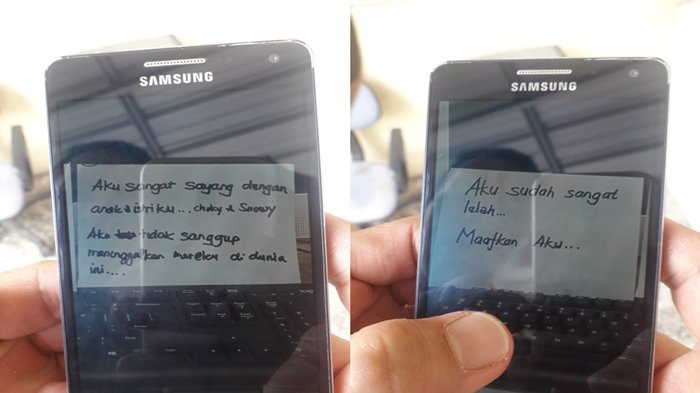 SAMSUNG
Aku sangat sayang dengan
anak & istriku... choky & Snowy
Aku tidak sanggup
meninggalkan mereka di dunia
ini.....
SAMSUNG
Aku sudah sangat
lelah...
Maafkan Aku...